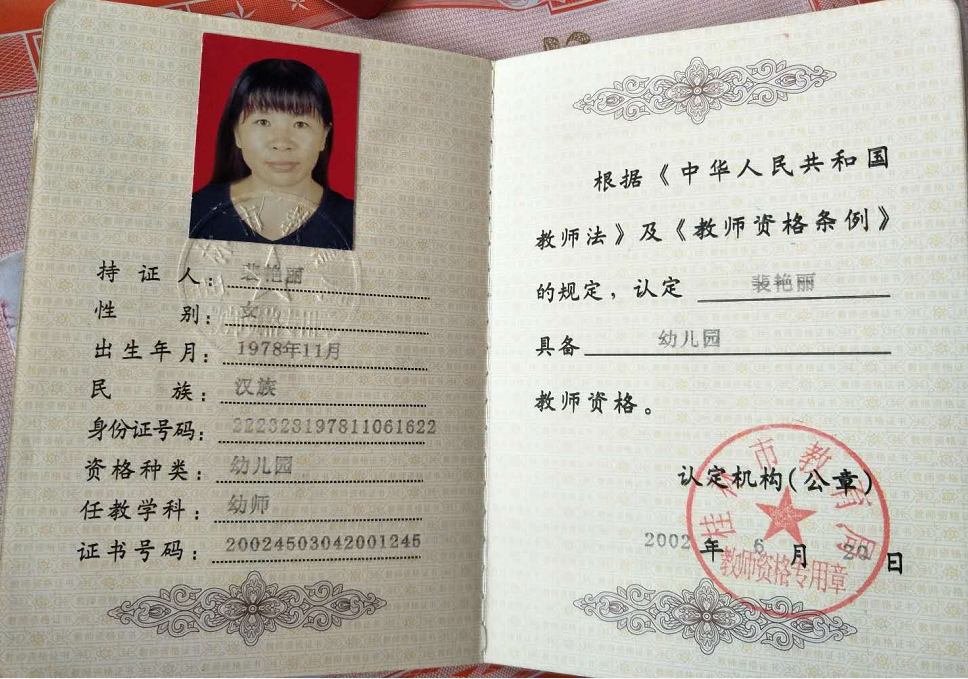 持证人：裴艳丽
性别：女
出生年月：1978年11月
民族：汉族
身份证号码：222323197811061622
资格种类：幼儿园
任教学科：幼师
证书号码：20024503042001245
根据《中华人民共和国
教师法》及《教师资格条例》
的规定，认定 裴艳丽
具备 幼儿园
教师资格。
认定机构(公章)
桂林市教育局
2002年6月20日
教师资格专用章